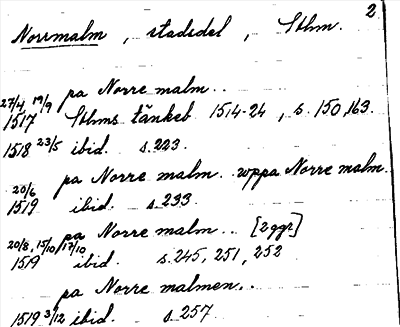 2
Norrmalm, stadsdel, Sthm.
pa Norre malm..
27/4, 19/9
1517 Sthms tänkeb 1514-24, s. 150, 163.
1518 23/5 ibid. s. 223.
pa Norre malm.. wppa Norre malm.
20/6
1519 ibid. s. 233
pa Norre malm.. [2 ggr]
20/8, 15/10, 17/10
1519 ibid. s. 245, 251, 252
pa Norre malmen..
1519 3/12 ibid. s. 257